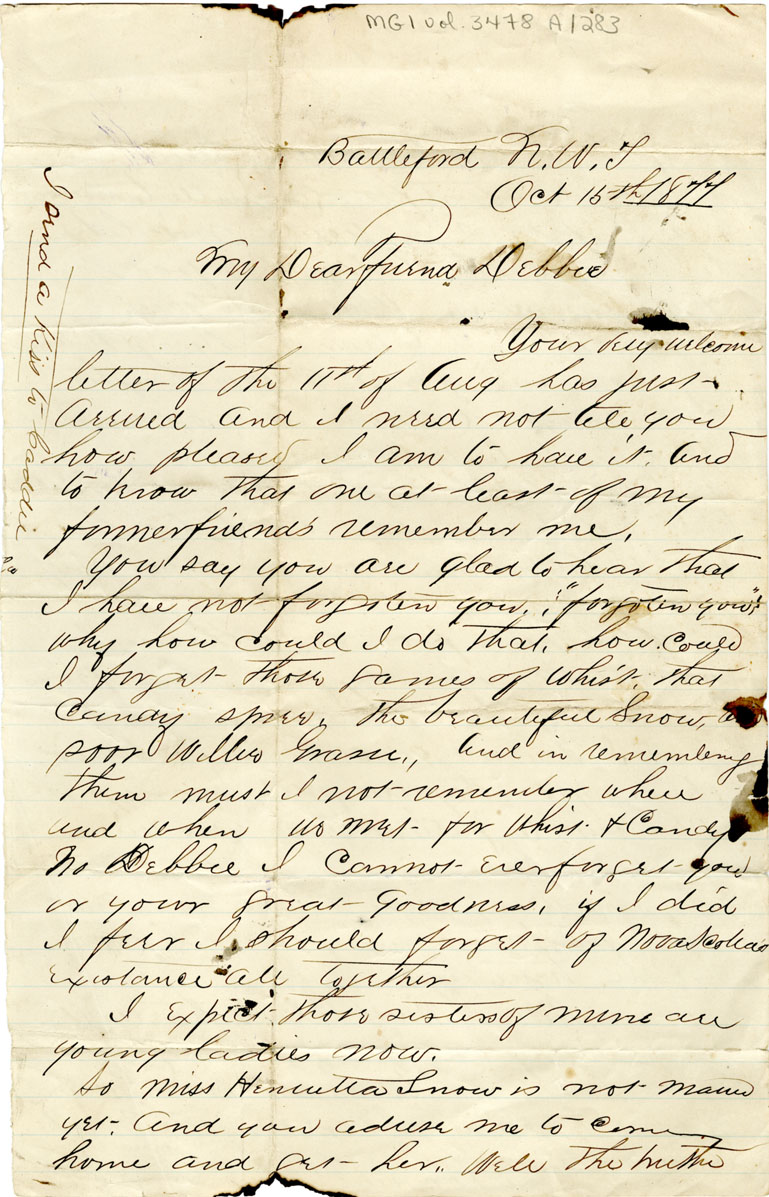 MG1 vol. 3478 A1283
Battleford N.W.T
Oct 15th 1877
My Dear Friend Debbie
Your very welcome
letter of the 11st of Aug has just
Arrived And I need not tell you
how pleased I am to have it. And
to know that one at least of my
former friends remember me.
You say you are glad to hear that
I have not forgoten you, "forgoten you"!
why how could I do that, how could
I forget those games of Whist, that
Candy spree, the beautiful Snow,
poor Willie Grasse, And in remembering
them must I not remember where
and when we met for Whist & Candy
No Debbie I Cannot Ever forget you
or your great Goodness, if I did
I fear I should forget of Nova Scotias
existance all together
I Expect those sisters of mine are
young Ladies now.
So Miss Henrietta Snow is not maried
yet. And you advise me to Come
home and get her. Well the truth
I send a Kiss to Caddie